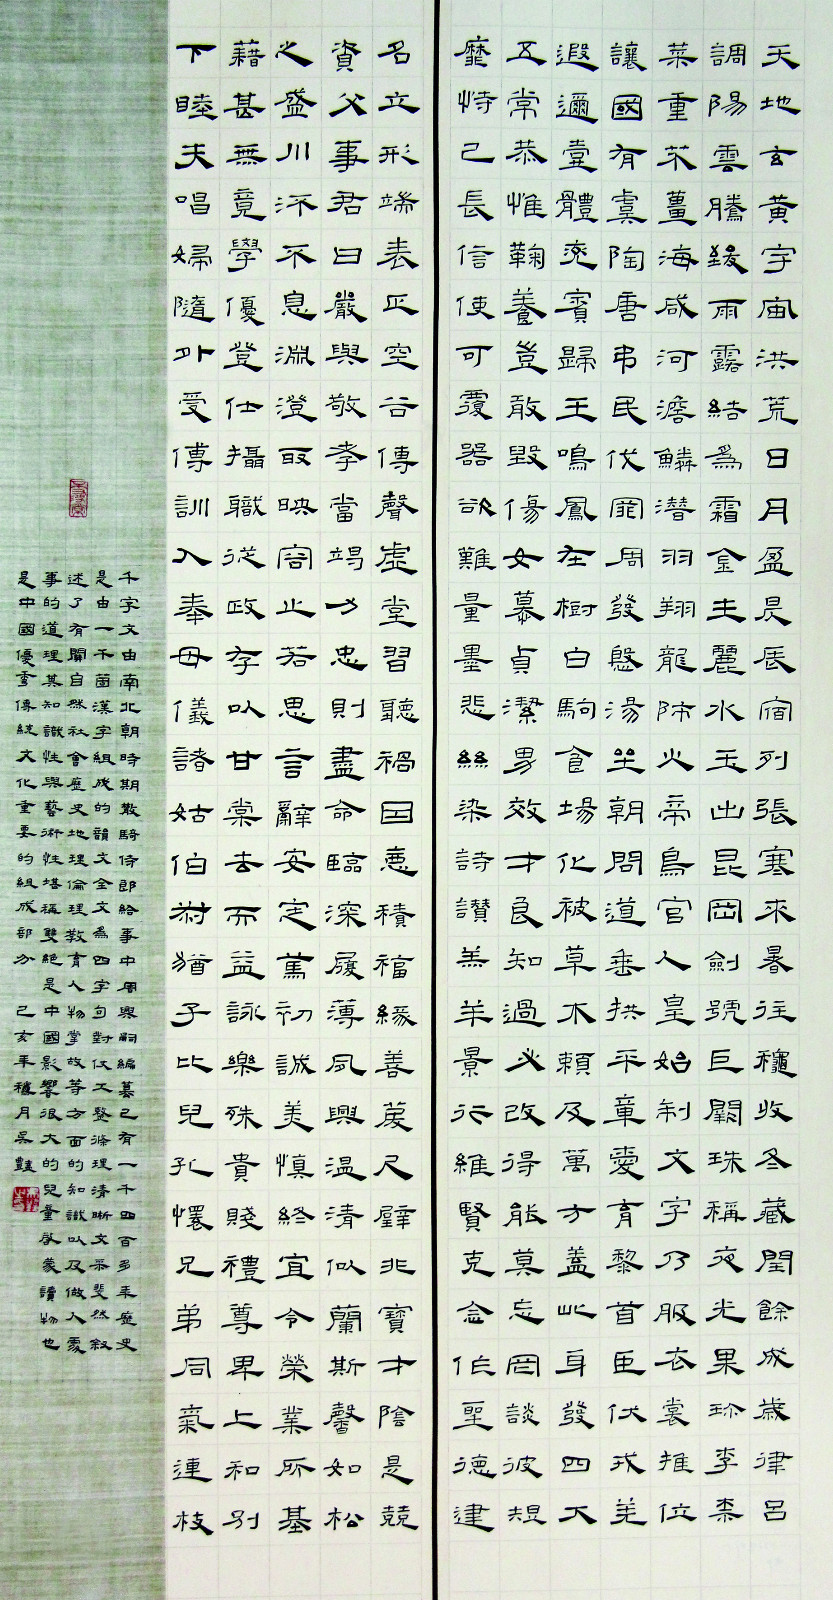 天地玄黃宇宙洪荒日月盈昃辰宿列張寒來暑往穐收冬藏閏餘成歲律呂
調陽雲騰致雨露結為霜金生麗水玉出昆岡劍號巨闕珠稱夜光果珍李柰
菜重芥薑海咸河澹鱗潛羽翔龍師火帝鳥官人皇始制文字乃服衣裳推位
讓國有虞陶唐弔民伐罪周發殷湯坐朝問道垂拱平章愛育黎首臣伏戎羌
遐邇壹體率賓歸王鳴鳳在樹白駒食場化被草木賴及萬方蓋此身發四大
五常恭惟鞠養豈敢毀傷女慕貞潔男效才良知過必改得能莫忘罔談彼短
靡恃己長信使可覆器欲難量墨悲絲染詩讚羔羊景行維賢克念作聖德建
名立形端表正空谷傳聲虛堂習聽禍因惡積福緣善慶尺璧非寶寸陰是競
資父事君曰嚴與敬孝當竭力忠則盡命臨深履薄夙興溫清似蘭斯馨如松
之盛川流不息淵澄取映容止若思言辭安定篤初誠美慎終宜令榮業所基
藉甚無竟學優登仕攝職從政存以甘棠去而益詠樂殊貴賤禮尊卑上和別
下睦夫唱婦隨外受傅訓入奉母儀諸姑伯叔猶子比兒孔懷兄弟同氣連枝
千字文由南北朝時期散騎侍郎給事中周興嗣編纂已有一千四百多年歷史
是由一千箇漢字組成的韻文全文為四字句對仗工整條理清晰文采斐然敘
述了有關自然社會歷史地理倫理教育人物掌故等方面的知識以及做人處
事的道理其知識性與藝術性堪稱雙絕是中國影響很大的兒童啟蒙讀物也
是中國優秀傳統文化重要的組成部分 己亥年穐月吳